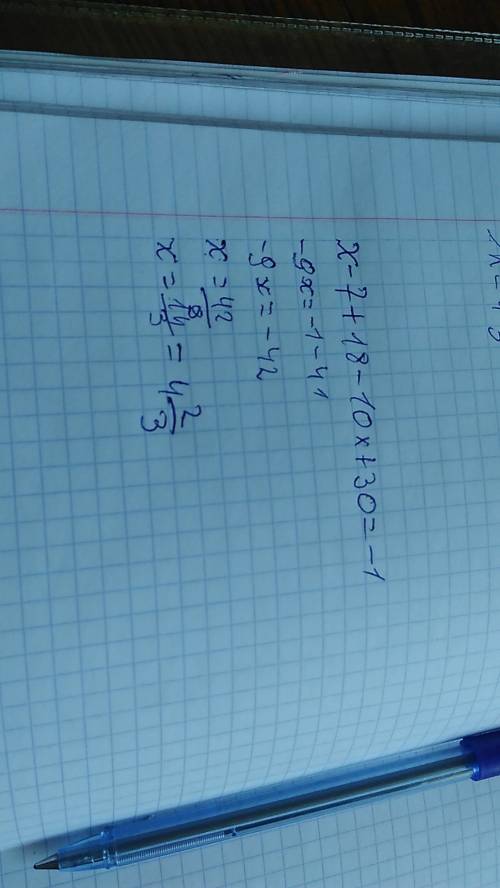 x-7+18-10x+30=-1
-9x=-1-41
-9x=-42
x=42/9
x=14/3=4 2/3